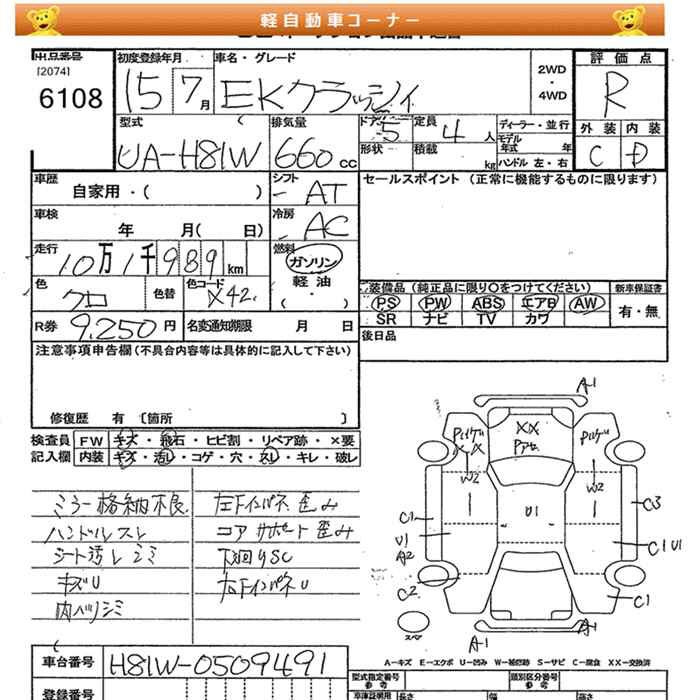 軽自動車コーナー
出品番号
[2074]
6108
初度登録年月
15 7月
車名・グレード
EKクラッシィ
2WD
・
4WD
評価点
R
外装 内装
C D
型式
UA-H81W
排気量
660 cc
ドア
5
形状
定員
4 人
積載
kg
ディーラー・並行
モデル年式 年
ハンドル 左・右
車歴
自家用・( )
シフト
AT
セールスポイント (正常に機能するものに限ります)
車検
年 月( 日)
冷房
AC
走行
10万1千989km
燃料
ガソリン
軽油
( ・ )
色
クロ
色替
色コード
X42
装備品 (純正品に限り○をつけてください)
PS PW ABS エアB AW
SR ナビ TV カワ
新車保証書
有・無
R券 9,250円
名変通知期限 月 日
後日品
注意事項申告欄(不具合内容等は具体的に記入して下さい)
修復歴 有 〔箇所 〕
検査員
記入欄
FW キズ・飛石・ヒビ割・リペア跡・×要
内装 キズ・汚レ・コゲ・穴・スレ・キレ・破レ
ミラー格納不良
ハンドルスレ
シート汚レシミ
キズU
内ハリシミ
左下インパネ歪み
コアサポート歪み
下廻りSC
右下インパネU
A-1
XX
W2
W2
U1
C1
U1
A2
C2
C3
C1 U1
C1
スペア
A-1
A-1
A-キズ E-エクボ U-凹み W-補修跡 S-サビ C-腐食 XX-交換済
車台番号
H81W-0509491
登録番号
型式指定番号
参考
類別区分番号
参考
車庫証明用
長さ
幅
高さ